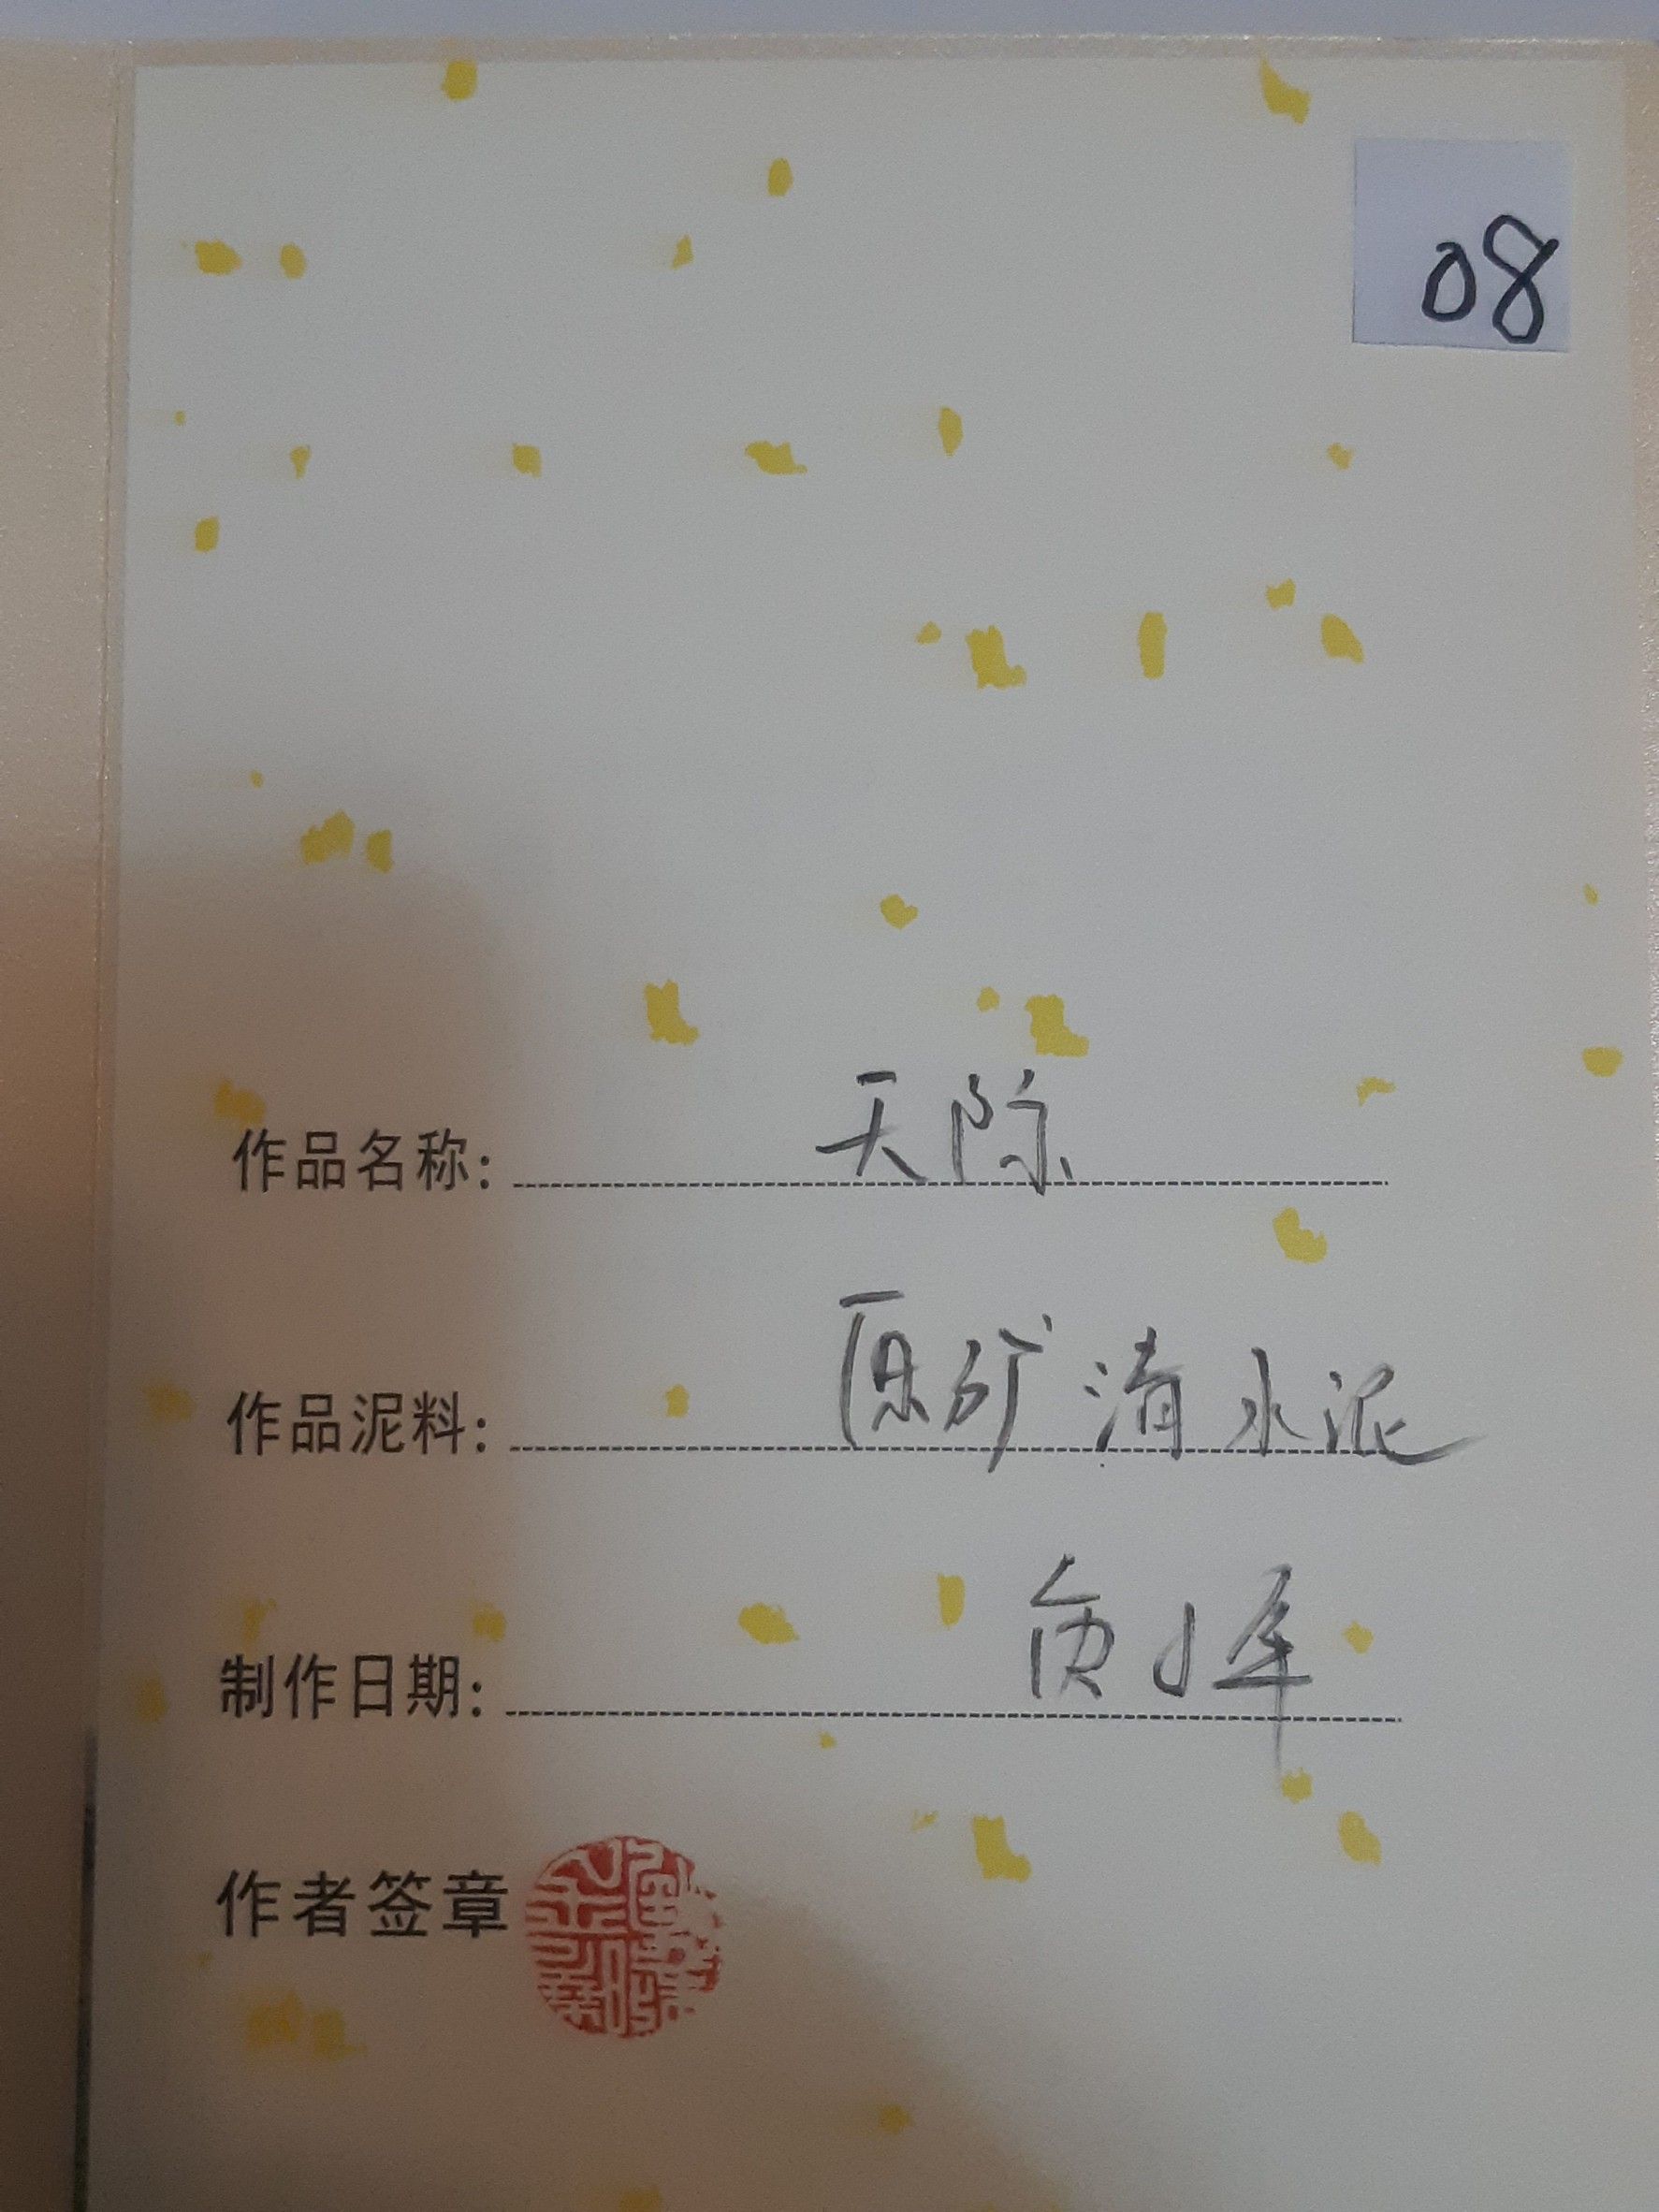 08
作品名称: 天际
作品泥料: 原矿清水泥
制作日期:
作者签章